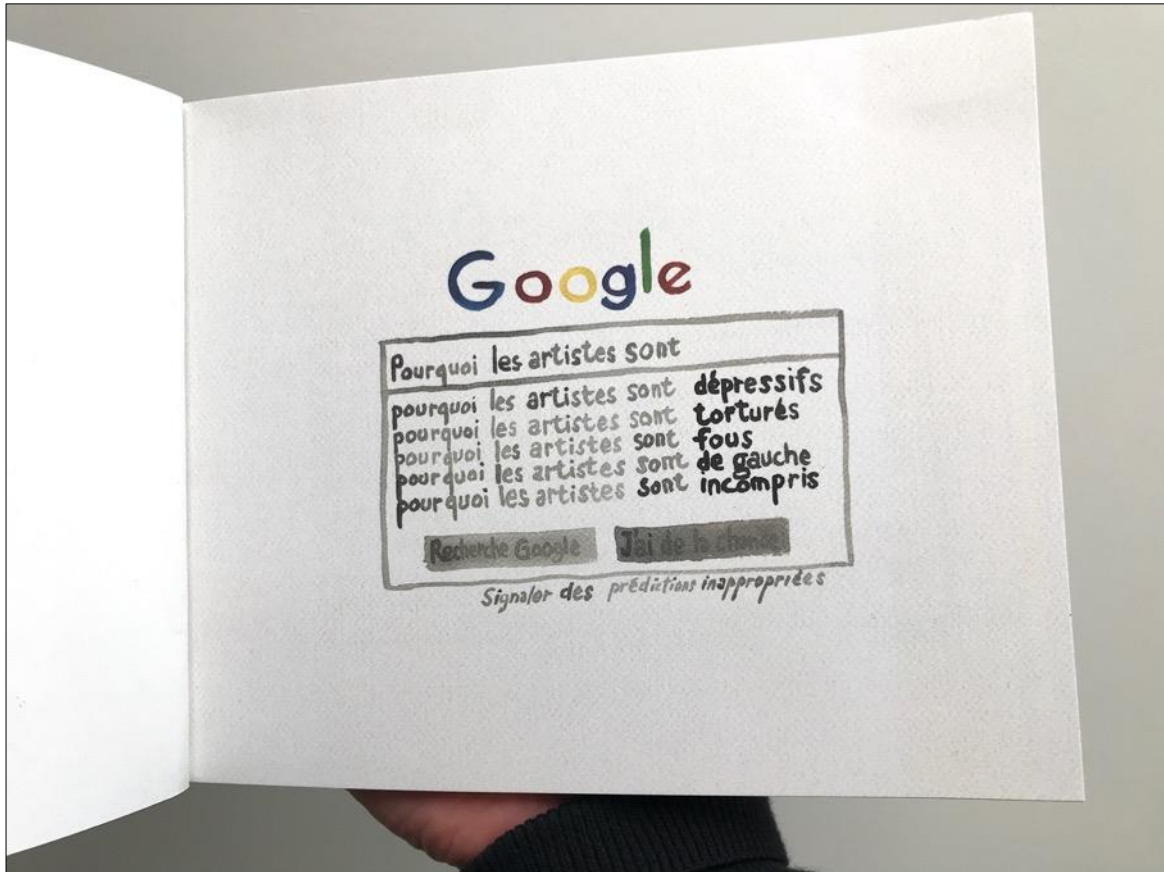 Google
Pourquoi les artistes sont
pourquoi les artistes sont dépressifs
pourquoi les artistes sont torturés
pourquoi les artistes sont fous
pourquoi les artistes sont de gauche
pourquoi les artistes sont incompris
Recherche Google J'ai de la chance
Signaler des prédictions inappropriées